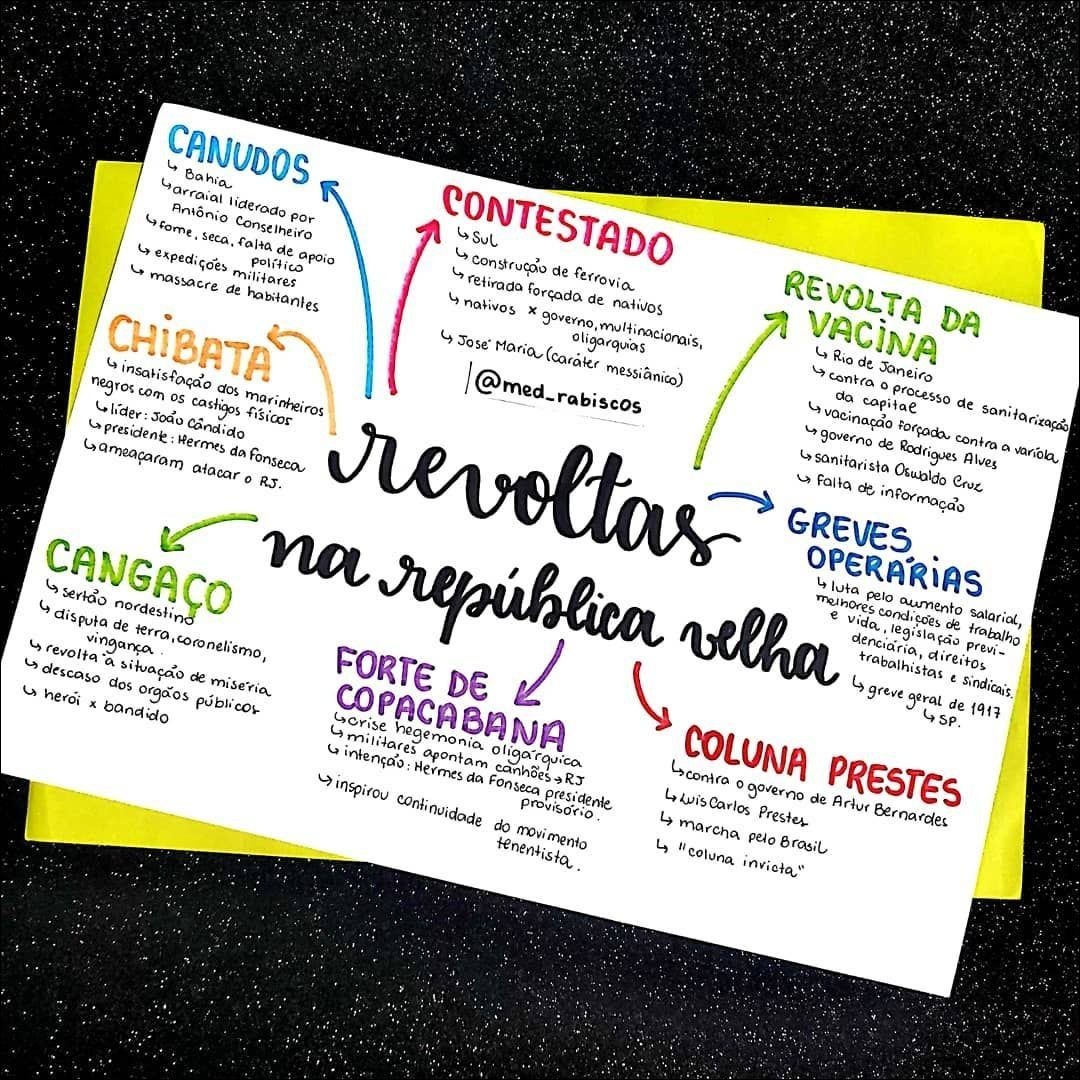 CANUDOS
↳ Bahia
↳ arraial liderado por
Antônio Conselheiro
↳ fome, seca, falta de apoio
político
↳ expedições militares
↳ massacre de habitantes
CONTESTADO
↳ Sul
↳ construção de ferrovia
↳ retirada forçada de nativos
↳ nativos x governo, multinacionais,
oligarquias
↳ José Maria (caráter messiânico)
@med_rabiscos
REVOLTA DA
VACINA
↳ Rio de Janeiro
↳ contra o processo de sanitarização
da capital
↳ vacinação forçada contra a varíola
↳ governo de Rodrigues Alves
↳ sanitarista Oswaldo Cruz
↳ falta de informação
CHIBATA
↳ insatisfação dos marinheiros
negros com os castigos físicos
↳ líder: João Cândido
↳ presidente: Hermes da Fonseca
↳ ameaçaram atacar o RJ.
revoltas
na república velha
GREVES
OPERÁRIAS
↳ luta pelo aumento salarial,
melhores condições de trabalho
e vida, legislação previ-
denciária, direitos
trabalhistas e sindicais.
↳ greve geral de 1917
↳ SP.
CANGAÇO
↳ sertão nordestino
↳ disputa de terra, coronelismo,
vingança.
↳ revolta à situação de miséria
↳ descaso dos orgãos públicos
↳ herói x bandido
FORTE DE
COPACABANA
↳ crise hegemonia oligárquica
↳ militares apontam canhões → RJ
↳ intenção: Hermes da Fonseca presidente
provisório.
↳ inspirou continuidade do movimento
tenentista.
COLUNA PRESTES
↳ contra o governo de Artur Bernardes
↳ Luis Carlos Prestes
↳ marcha pelo Brasil
↳ "coluna invicta"